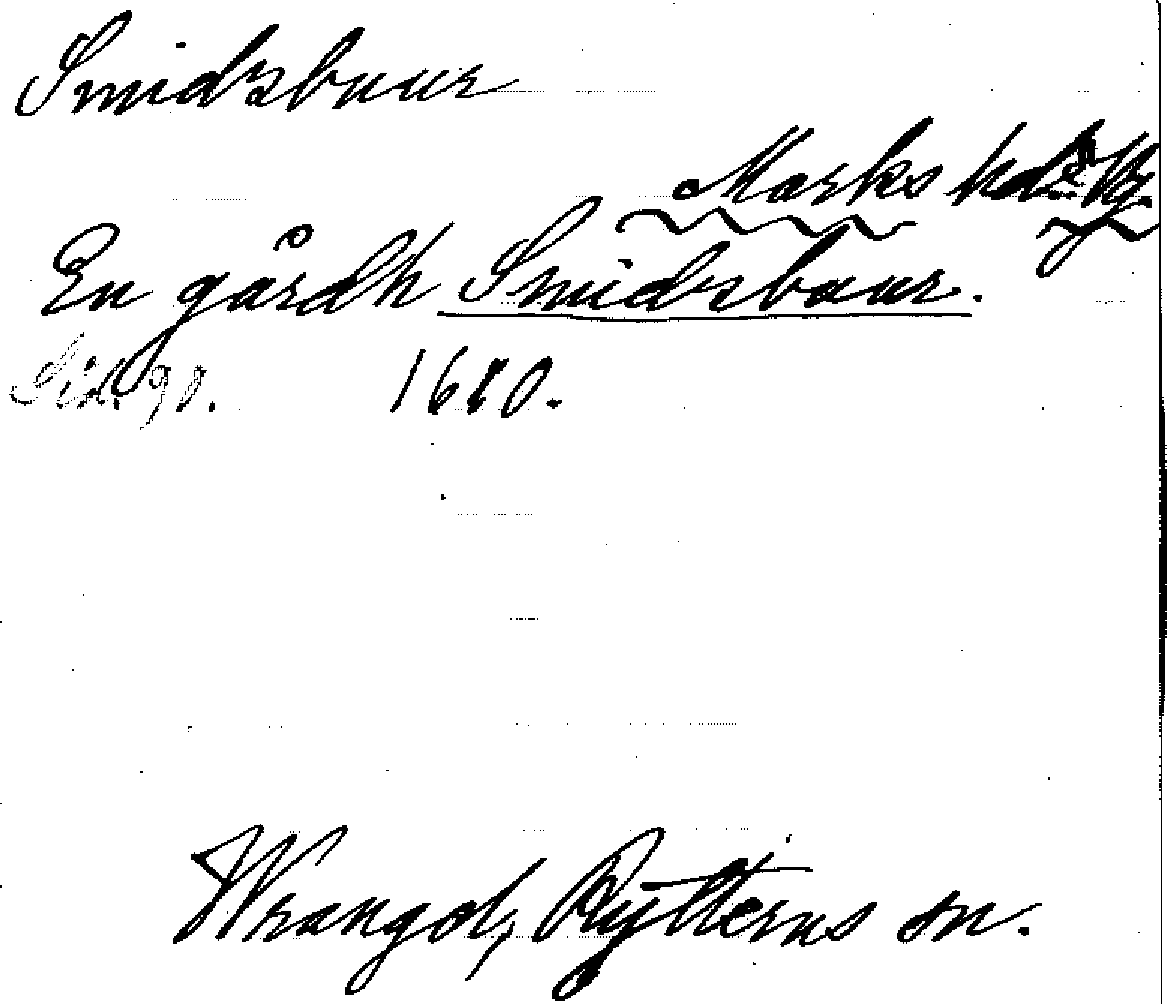 Smidsbuur
Marks hd Vg.
En gårdh Smidsbour.
Sid. 90. 1680.
Wrangel, Rytterns sn.